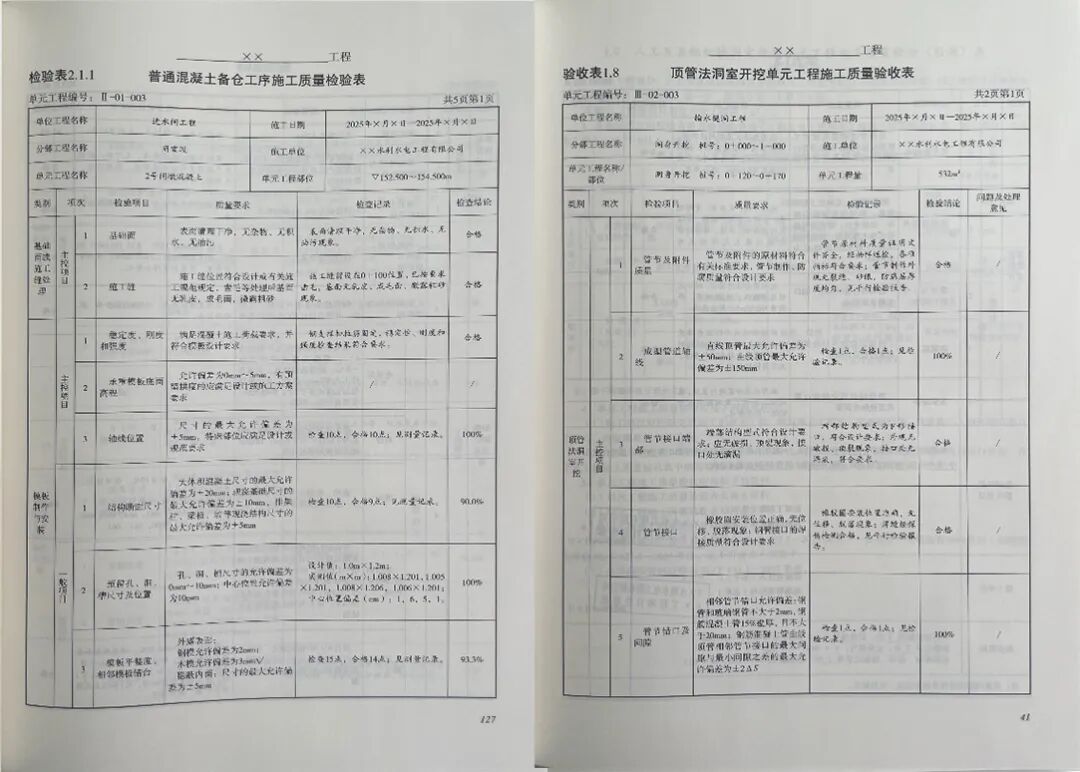 ×× 工程
检验表2.1.1 普通混凝土备仓工序施工质量检验表
单元工程编号：Ⅱ-01-003 共5页第1页
单位工程名称 进水闸工程 施工日期 2025年×月×日—2025年×月×日
分部工程名称 闸室段 施工单位 ××水利水电工程有限公司
单元工程名称 2号闸墩混凝土 单元工程部位 ▽152.500～154.500m
类别 项次 检验项目 质量要求 检查记录 检查结论
基础面或施工缝处理
主控项目
1 基础面
表面清理干净，无杂物、无积
水、无油污
表面清理干净，无杂物、无积水、无
油污现象。
合格
2 施工缝
施工缝位置符合设计或有关施
工
无乳皮，成毛面，微露粗砂
施工缝留设在0+100位置，已按要求
凿毛，基面无乳皮、成毛面，微露粗砂
现象。
合格
模板制作与安装
主控项目
1 稳定度、刚度
和强度
满足混凝土施工荷载要求，并
符合模板设计要求
钢支撑和拉筋固定，稳定性、刚度和
强度检查结果符合要求。
合格
2 承重模板底面
高程
允许偏差为0mm～5mm，有预
设起拱度的应满足设计或施工方案
要求
/ /
3 轴线位置
尺寸的最大允许偏差为
±5mm，特殊部位应满足设计或
规范要求
检查10点，合格10点；见测量记录。
100%
一般项目
1 结构断面尺寸
大体积混凝土尺寸的最大允许
偏差为±20mm；坝底基础尺寸的
最大允许偏差为±10mm，排架
柱、梁板、墙等现浇结构尺寸的
最大允许偏差为±5mm
检查10点，合格9点；见测量记录。
90.0%
2 预留孔、洞、
槽尺寸及位置
孔、洞、槽尺寸的允许偏差为
0mm～10mm；中心位置允许偏差
为10mm
设计值：1.0m×1.2m；
实测值(m×m)：1.008×1.201，1.005
×1.201，1.008×1.206，1.006×1.201；
中心位置偏差(cm)：1，6，5，1。
100%
3 模板平整度、
相邻模板错台
外露表面：
钢模允许偏差为2mm；
木模允许偏差为3mm；
隐蔽内面：尺寸的最大允许偏
差为±5mm
检查15点，合格14点；见测量记录。
93.3%
127
×× 工程
验收表1.8 顶管法洞室开挖单元工程施工质量验收表
单元工程编号：Ⅲ-02-003 共2页第1页
单位工程名称 输水隧洞工程 施工日期 2025年×月×日—2025年×月×日
分部工程名称 洞身开挖 桩号：0+000～1+000 施工单位 ××水利水电工程有限公司
单元工程名称/
部位
洞身开挖 桩号：0+120～0+170 单元工程量 532m³
类别 项次 检验项目 质量要求 检验记录 检验结论 问题及处理
意见
顶管法洞室开挖
主控项目
1 管节及附件
质量
管节及附件的原材料符合
有关标准要求，管节制作、防
腐质量符合设计要求
管节原材料质量证明文
件齐全，经抽样送检，各项
指标符合要求；管节制作外
观无裂缝、砂眼，防腐层厚
度均匀，见平行检验报告。
合格 /
2 成型管道轴
线
直线顶管最大允许偏差为
±50mm；曲线顶管最大允许
偏差为±150mm
检查1点，合格1点；见检
验记录。
100% /
3 管节接口端
部
端部结构型式符合设计要
求；应无破损、顶裂现象，接
口处无滴漏
口，符合设计要求；外观无
破损、顶裂现象，接口处无
滴漏，符合要求。
合格 /
4 管节接口
橡胶圈安装位置正确，无位
移、脱落现象；钢管接口的焊
接质量符合设计要求
橡胶圈安装位置准确，无
位移、脱落现象；焊缝经探
伤检测合格，见平行检验报
告。
合格 /
5 管节错口及
间隙
相邻管节错口允许偏差：钢
管和玻璃钢管不大于2mm，钢
筋混凝土管15%壁厚，且不大
于20mm；钢筋混凝土管曲线
顶管相邻管节接口的最大间
隙与最小间隙之差的最大允
许偏差为±2ΔS
检查1点，合格1点；见检
验记录。
100% /
41